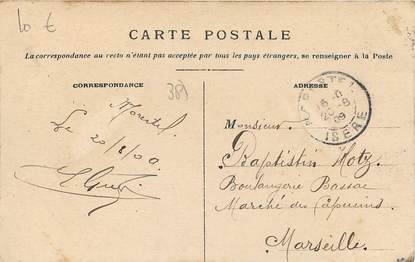 10 €
CARTE POSTALE
La correspondance au recto n'étant pas acceptée par tous les pays étrangers, se renseigner à la Poste
CORRESPONDANCE
ADRESSE
389
Morestel
Le 20/8/09
ISÈRE
Monsieur
Baptistin Motz
Boulangerie Bassac
Marché des Capucins
Marseille.